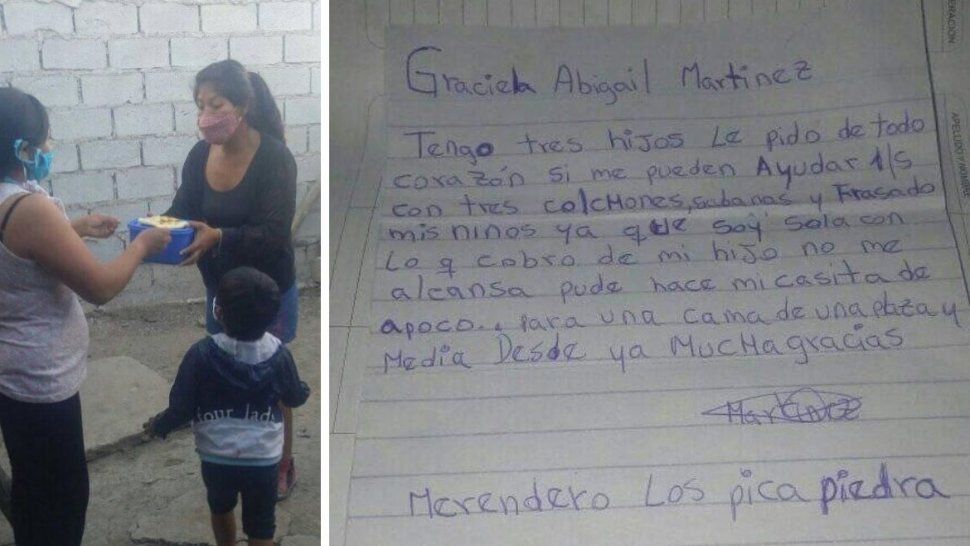 Graciela Abigail Martinez
Tengo tres hijos Le pido de todo
corazón si me pueden Ayudar 1/S
con tres colcHones, sabanas y Frasado
mis ninos ya que soy sola con
Lo q cobro de mi hijo no me
alcansa pude hace mi casita de
apoco.. para una cama de una plaza y
Media Desde ya MucHa gracias
Martinez
Merendero Los pica piedra
your lady
ERACION
APELLIDO Y NOMBRE